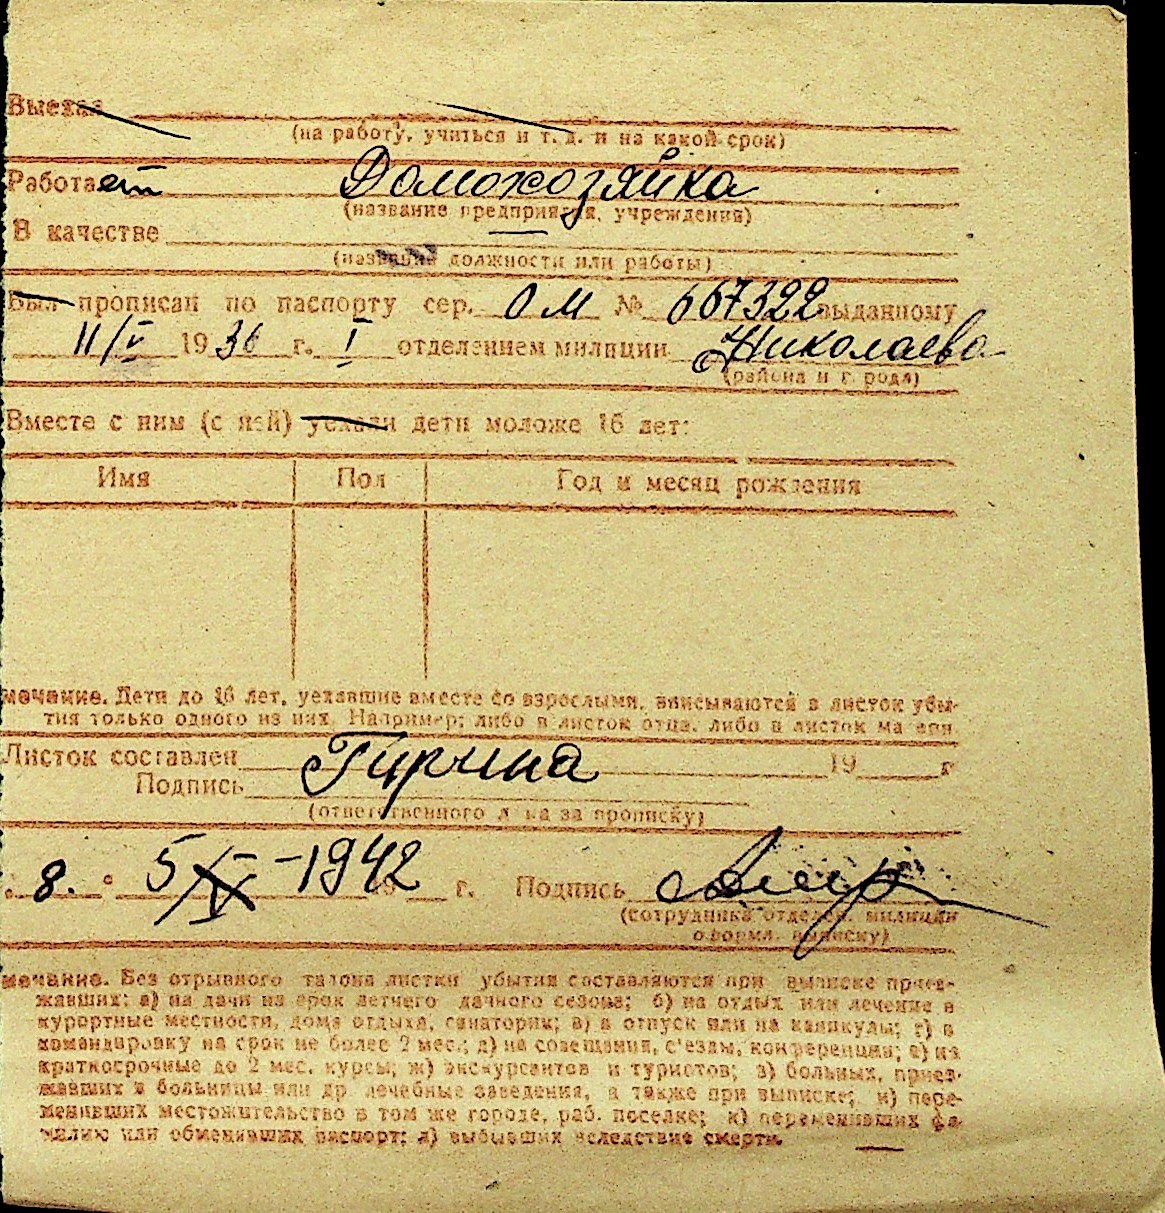 Выехал
(на работу, учиться и т. д. и на какой срок)
Работает Домохозяйка
(название предприятия, учреждения)
В качестве
(название должности или работы)
Был прописан по паспорту сер. ОМ № 667322 выданному
11/V 1936 г. I отделением милиции Николаева
(района и города)
Вместе с ним (с ней) уехали дети моложе 16 лет:
Имя Пол Год и месяц рождения
мечание. Дети до 16 лет, уехавшие вместе со взрослыми, вписываются в листок убы-
тия только одного из них. Например: либо в листок отца, либо в листок матери
Листок составлен Гурина 19 г
Подпись
(ответственного лица за прописку)
8. 5 1942 19 г. Подпись
(сотрудника отделен. милиции
оформл. выписку)
мечание. Без отрывного талона листки убытия составляются при выписке приез-
жавших: а) на дачи на срок летнего дачного сезона; б) на отдых или лечение в
курортные местности, дома отдыха, санатории; в) в отпуск или на каникулы; г) в
командировку на срок не более 2 мес.; д) на совещания, с'езды, конференции; е) на
краткосрочные до 2 мес. курсы; ж) экскурсантов и туристов; з) больных, приез-
жавших в больницы или др. лечебные заведения, а также при выписке; и) пере-
менивших местожительство в том же городе, раб. поселке; к) переменивших фа-
милию или обменивших паспорт; л) выбывших вследствие смерти.